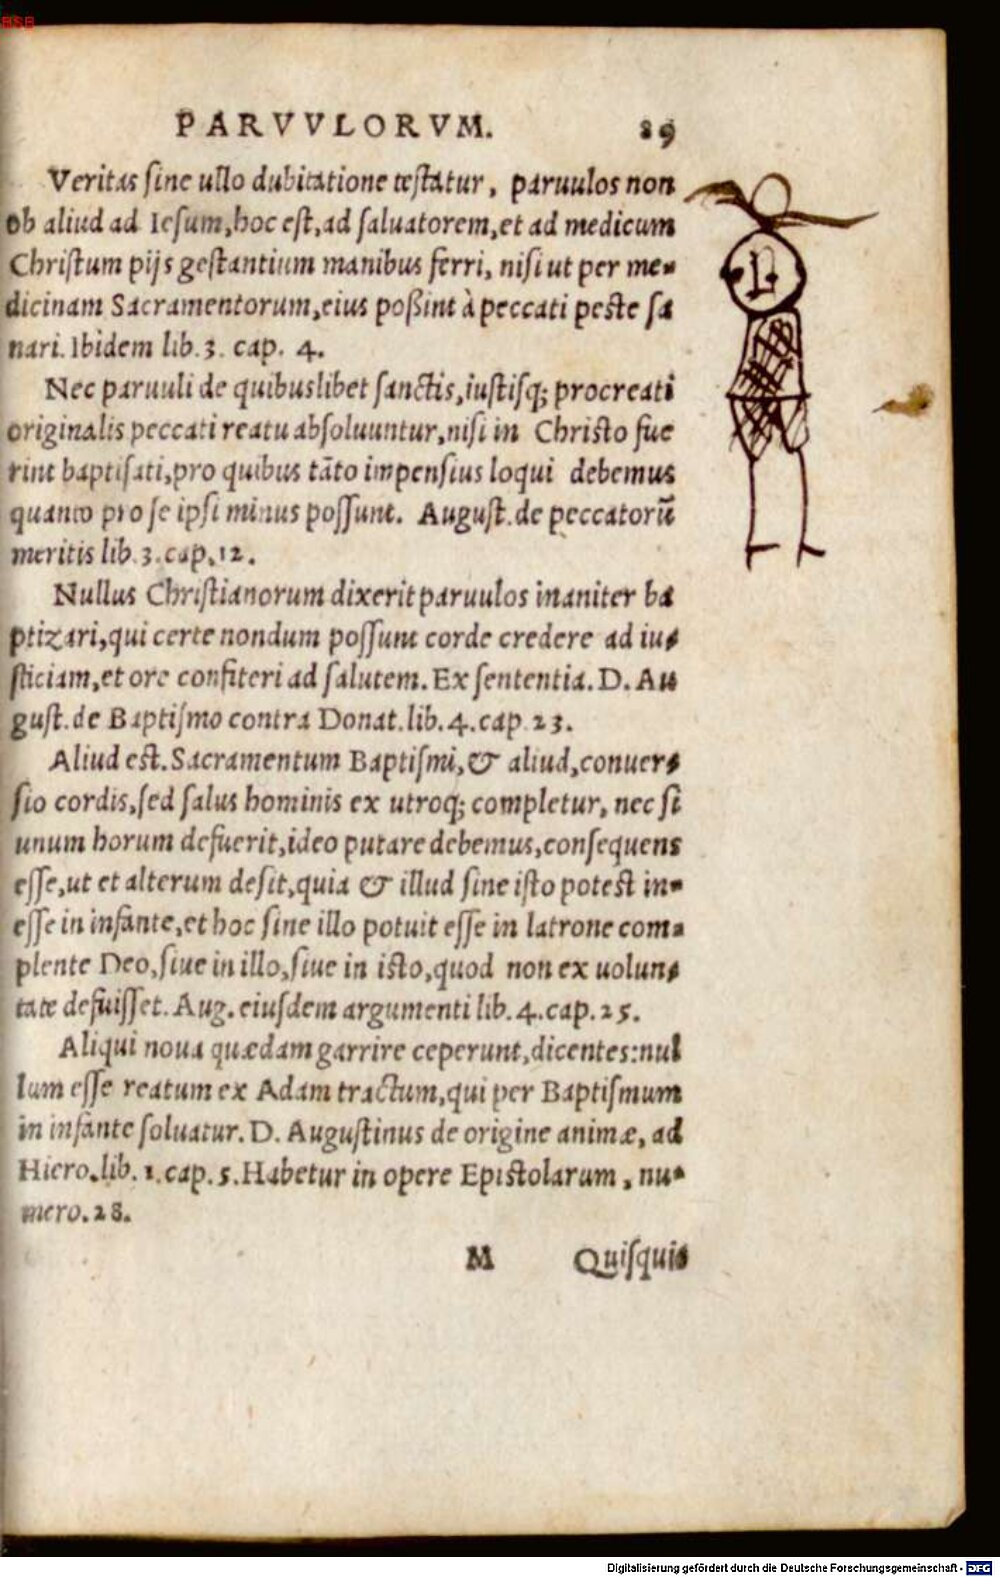 BSB
PARVVLORVM. 89
Veritas sine ullo dubitatione testatur, paruulos non
ob aliud ad Iesum,hoc est,ad saluatorem,et ad medicum
Christum pijs gestantium manibus ferri, nisi ut per me-
dicinam Sacramentorum,eius poßint à peccati peste sa
nari. Ibidem lib. 3. cap. 4.
Nec paruuli de quibuslibet sanctis,iustisq; procreati
originalis peccati reatu absoluuntur,nisi in Christo fue
rint baptisati,pro quibus tãto impensius loqui debemus
quanto pro se ipsi minus possunt. August.de peccatorũ
meritis lib.3.cap.12.
Nullus Christianorum dixerit paruulos inaniter ba
ptizari,qui certe nondum possunt corde credere ad iu-
sticiam,et ore confiteri ad salutem. Ex sententia. D. Au
gust.de Baptismo contra Donat.lib.4.cap.23.
Aliud est. Sacramentum Baptismi,& aliud,conuer-
sio cordis,sed salus hominis ex utroq; completur, nec si
unum horum defuerit,ideo putare debemus,consequens
esse,ut et alterum desit,quia & illud sine isto potest in-
esse in infante,et hoc sine illo potuit esse in latrone com-
plente Deo,siue in illo,siue in isto,quod non ex uolun-
tate defuisset. Aug. eiusdem argumenti lib.4.cap.25.
Aliqui noua quædam garrire ceperunt,dicentes:nul
lum esse reatum ex Adam tractum,qui per Baptismum
in infante soluatur. D. Augustinus de origine animæ, ad
Hiero.lib. 1.cap.5.Habetur in opere Epistolarum, nu-
mero.28.
M Quisquis
Digitalisierung gefördert durch die Deutsche Forschungsgemeinschaft - DFG